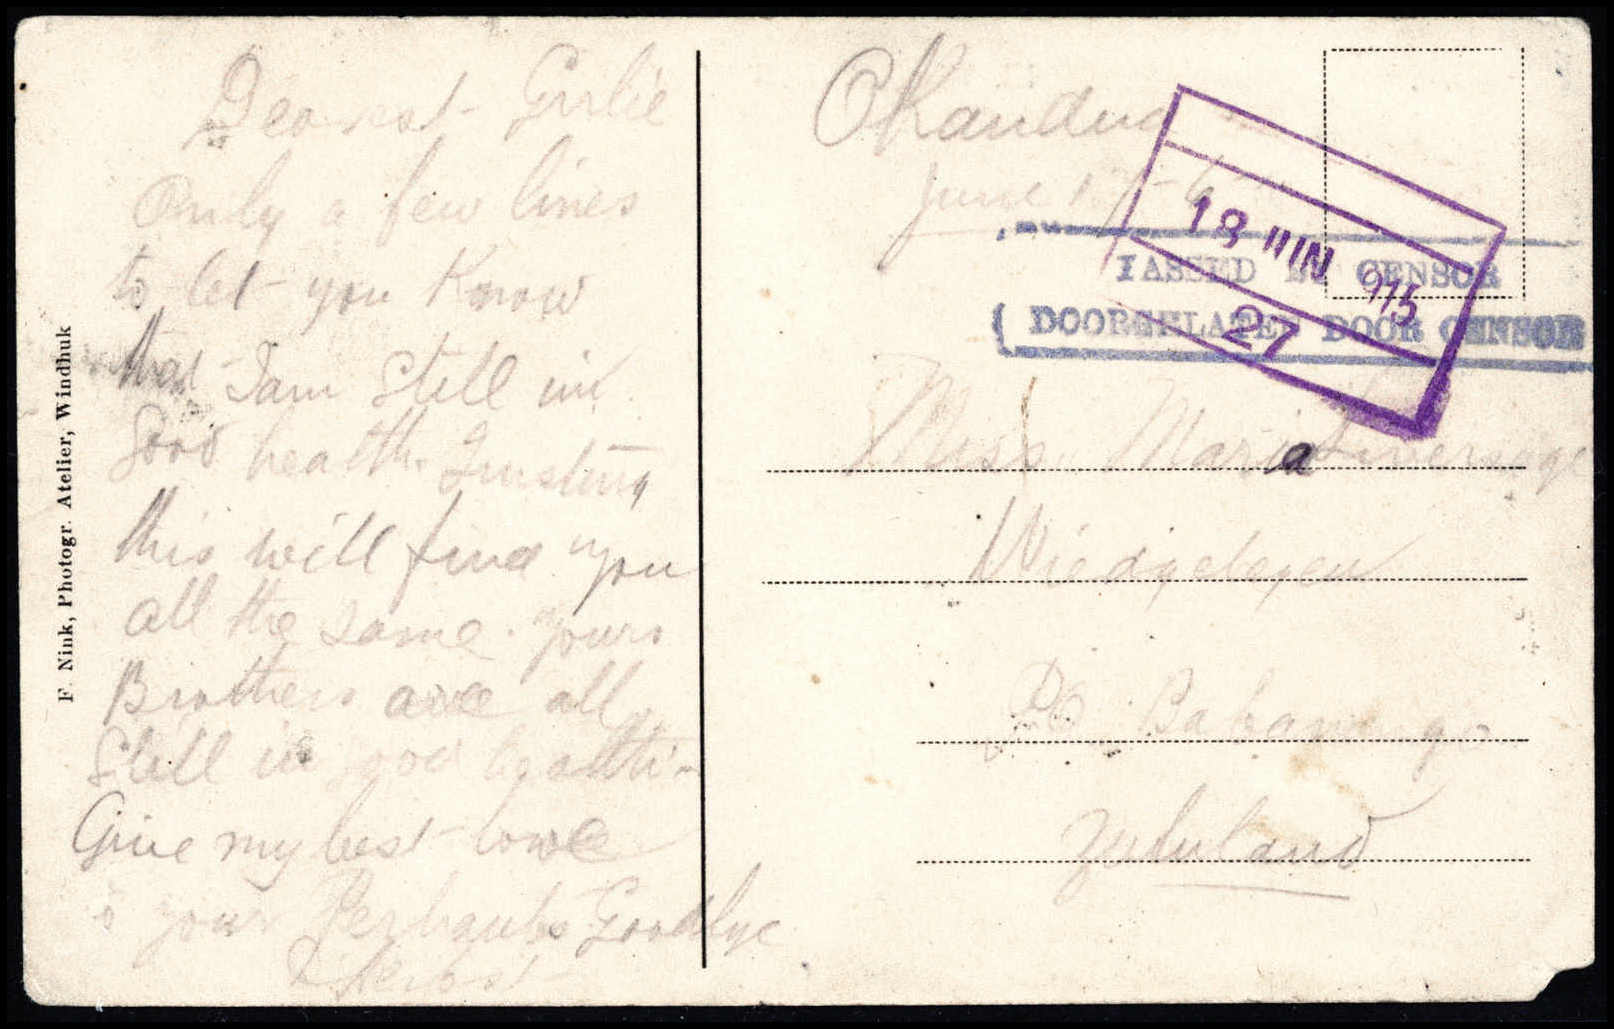 Dearest Girlie
Only a few lines
to let you Know
that I am Still in
Good health. Trusting
this will find you
all the same. Yours
Brothers are all
Still in good health
Give my best love
to your Goodbye
F. Nink, Photogr. Atelier, Windhuk
June 17-6
18 JUN 915
27
PASSED BY CENSOR
DOORGELATEN DOOR CENSOR
Miss. Maria Liversage
Wiedgelegen
PO Babanango
Zululand